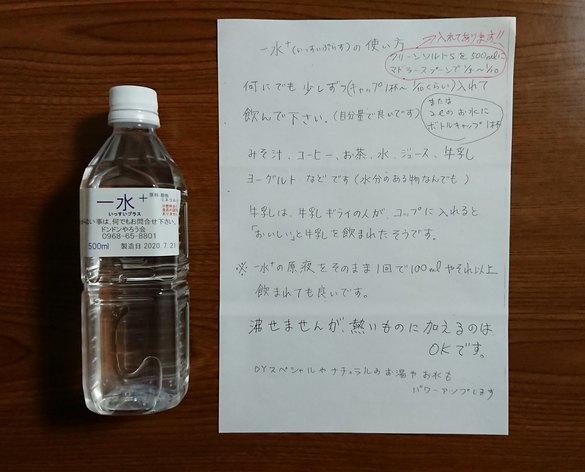 一水⁺
いっすいプラス
い事は、何でもお問合せ下さい。
ドンドンやろう会
0968-65-8801
500ml 製造日 2020.7.21
一水⁺(いっすいぷらす)の使い方
→入れてあります!!
クリーンソルトSを500mlに
マドラースプーンで1/5〜1/10
何にでも少しずつ(キャップ1杯〜1/10くらい)入れて
飲んで下さい。(自分量で良いです)
または
2ℓのお水に
ボトルキャップ1杯
みそ汁、コーヒー、お茶、水、ジュース、牛乳
ヨーグルトなどです(水分のある物なんでも)
牛乳は、牛乳ギライの人が、コップに入れると
「おいしい」と牛乳を飲まれたそうです。
※一水⁺の原液をそのまま1回で100mlやそれ以上
飲まれても良いです。
沸せませんが、熱いものに加えるのは
OKです。
DYスペシャルやナチュラルのお湯やお水も
パワーアップします